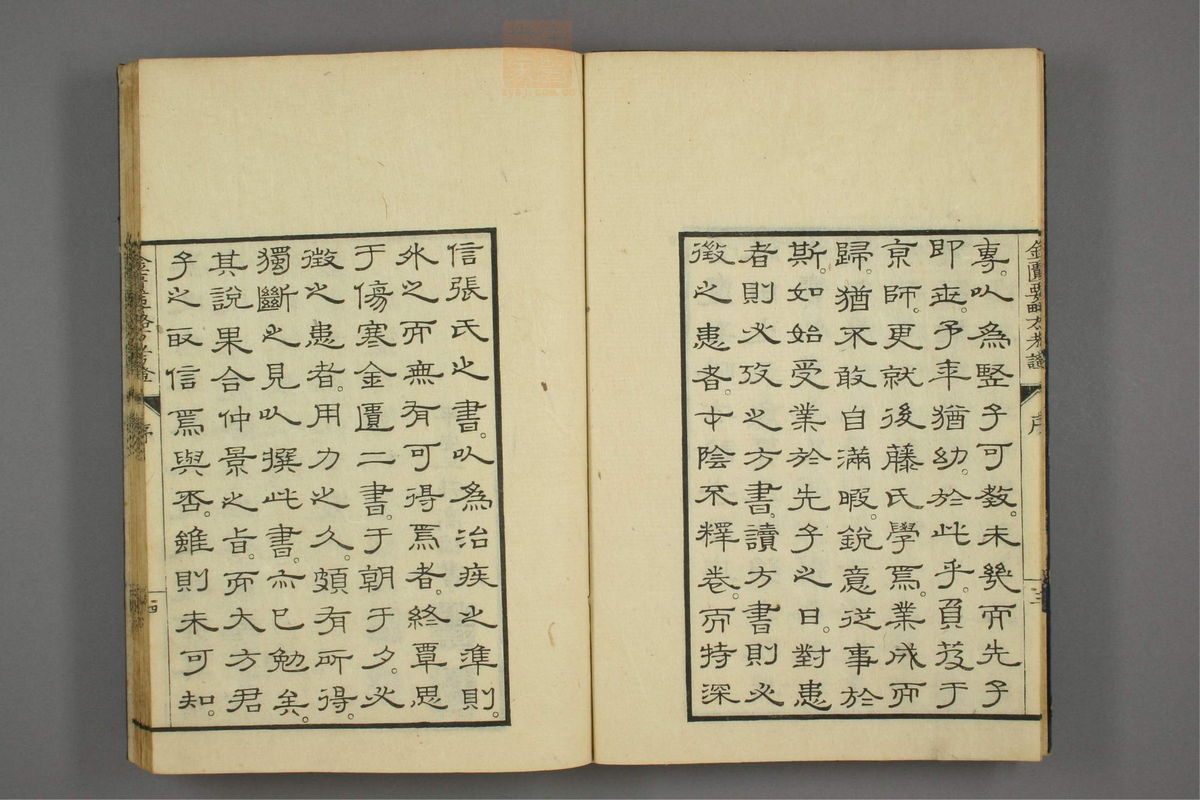 金匱要略方考證
序
三
專。以爲豎子可教。未幾而先子
即世。予年猶幼。於此乎。負笈于
京師。更就後藤氏學焉。業成而
歸。猶不敢自滿暇。銳意從事於
斯。如始受業於先子之日。對患
者則必攷之方書。讀方書則必
徵之患者。寸陰不釋卷。而特深
信張氏之書。以爲治疾之準則。
外之而無有可得焉者。終覃思
于傷寒金匱二書。于朝于夕。必
徵之患者。用力之久。頗有所得。
獨斷之見以撰此書。亦已勉矣。
其說果合仲景之旨。而大方君
子之取信焉與否。雖則未可知。
金匱要略方考證
序
四